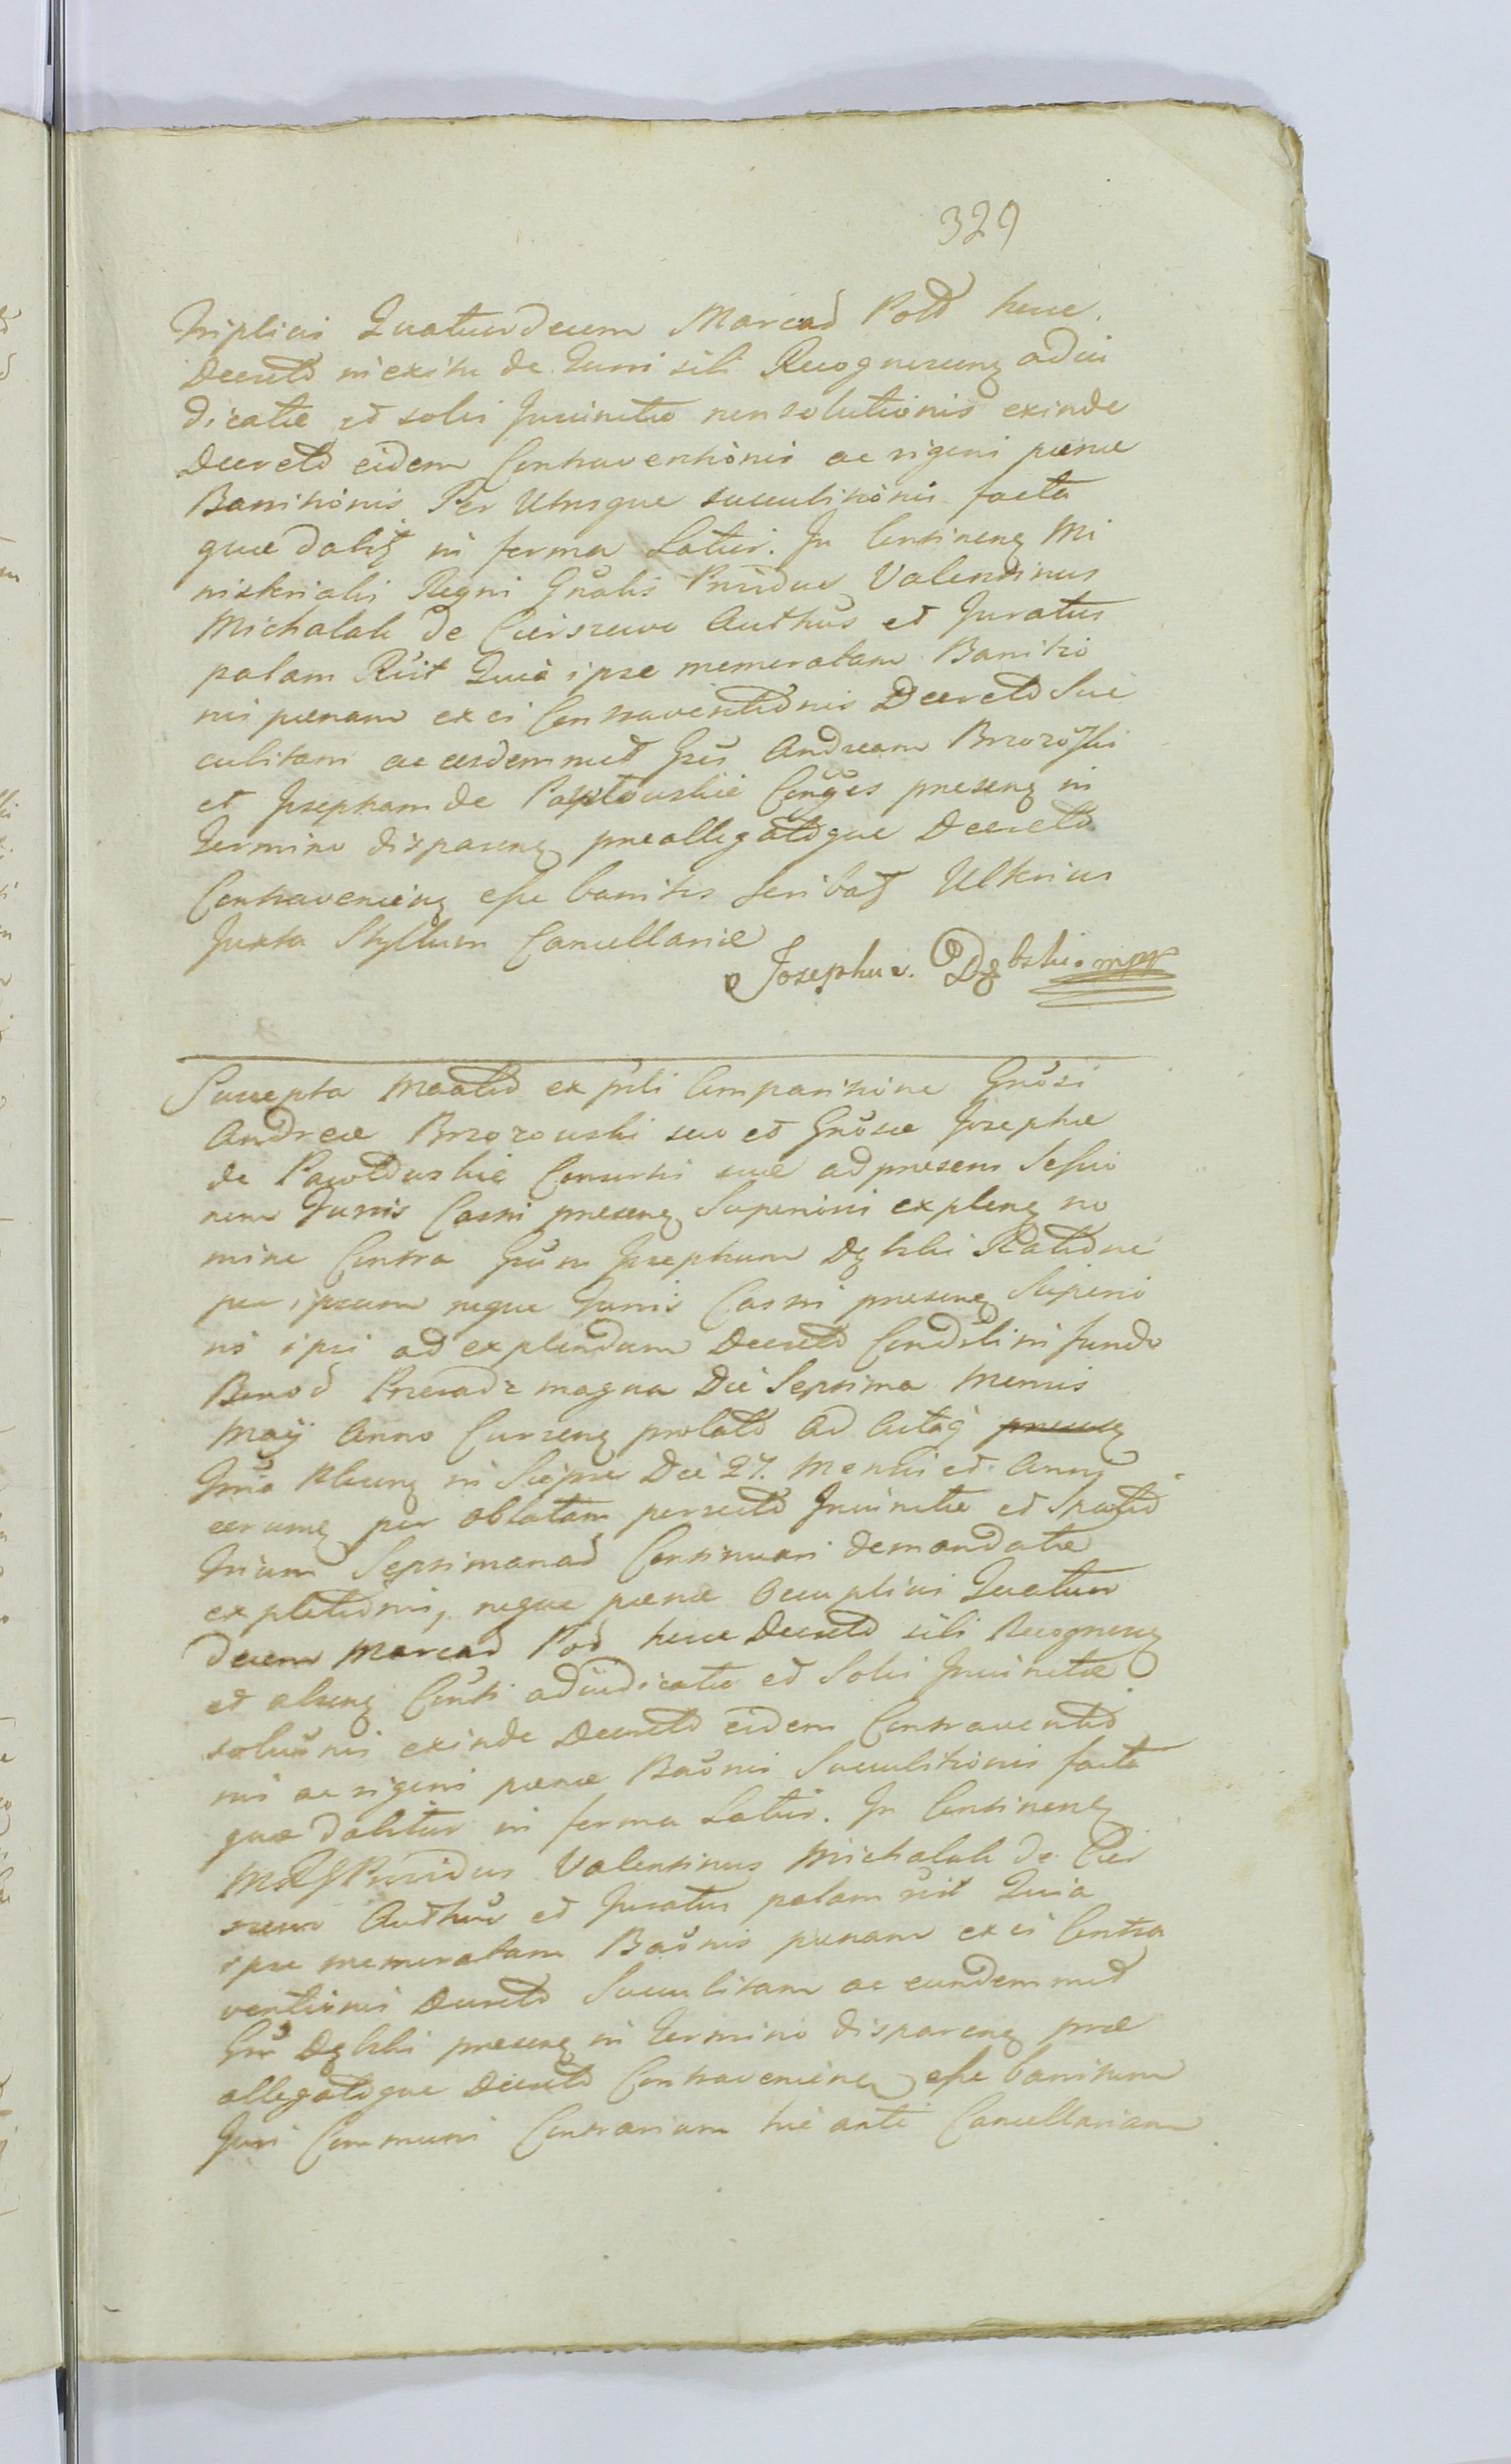 329
triplici Quatuordecem Marcad Pold huce
Decreto in exitu de Jurri sibi Recognuceng adiu
dicatæ et solvi Juvinctæ non solutionis exinde
Decreto eidem Contraventionis ac rigeri pœnæ
Bannitionis Per Utrsque succubitionis facta
quæ dabit in forma Latiri. In Contineng Mi
nisterialis Regni Gnalis Prvidus Valentinus
Michalak de Cierszewo Authus et Juratus
palam Rüit Quia ipse memoratam Banitio
nis pœnam ex ei Contraventionis Decreto Suc
cubitam ac eosdemmet Gsis Andream Brzozoski
et Josepham de Pawlowskie Conges preseng in
Termino dispareng præallegatoque Decreto
Contravenieng esse banitos scribat Ulterius
Juxta Styllum Cancellariæ
Josephus. Dębski. mpp
Suscepta Maatio ex psli Comparitione Gnosi
Andreæ Brzozowski suo et Gnosæ Josephæ
de Pawlowskie Consorti suæ ad presens Sessio
nem Jurris Castri preseng Superioris expleng no
mine Contra Gsum Josephum Dębski Ratione
per ipsum neque Jurris Castri preseng Superio
ris ipsi ad explendum Decreto Condsli in fundo
Bonod Przeradz magna Die Septima Mensis
Maÿ Anno Curreng prolato Ad Actaq preseng
in Sieprc Die 27. Mensis et Anni
eorumq per oblatam perrecto Juvinctæ et Spatio
trium Septimanad Continuari demandatæ
expletionis, neque pœnæ Occuplici Quatuor
decem Marcad Pod huce Decreto sibi Recogneng
et alseng Consti adiudicatæ et Solvi Juvinctæ
solusnis exinde Decreto eidem Contraventio
nis ac rigeris pœnæ Baonis Succubitionis facta
quæ dabitur in forma Latiri. In Contineng
MRG Prvidus Valentinus Michalak de Cier
szewo Authus et Juratus palam rüit Quia
ipse memoratam Baonis pœnam ex ei Contra
ventionis Decreto Succubitam ac eundemmet
Gsm Dębski preseng in Termino dispareng præ
allegatoque Decreto Contravenieng esse banitum
Juri Communi Contrarium hic ante Cancellariam